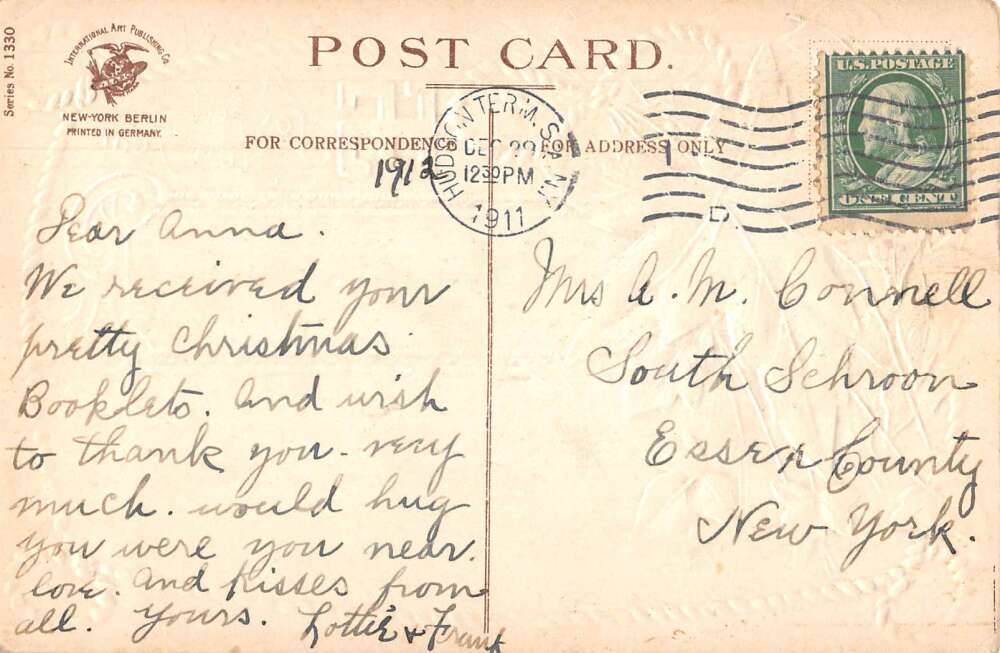 Series No. 1330
INTERNATIONAL ART PUBLISHING CO.
NEW-YORK BERLIN
PRINTED IN GERMANY.
POST CARD.
FOR CORRESPONDENCE
FOR ADDRESS ONLY
HUDSON TERM. STA. N.Y.
DEC 29
12 30 PM
1911
D
U.S. POSTAGE
ONE CENT
1912
Dear Anna.
We received your
pretty Christmas
Booklets. And wish
to thank you very
much. would hug
you were you near.
love. And kisses from
all. Yours. Lottie & Frank
Mrs A. M. Connell
South Schroon
Essex County
New York.